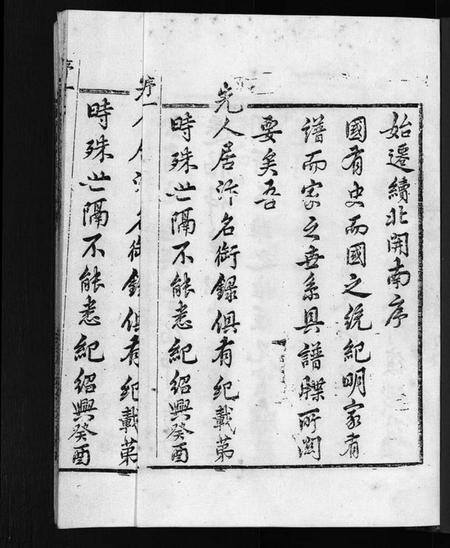 始遷續北開南序
國有史而國之統紀明家有
譜而家之世系具譜牒所關
要矣吾
先人居汴名銜錄俱有紀載第
時殊世隔不能悉紀紹興癸酉
序一
名銜錄俱有紀載第
時殊世隔不能悉紀紹興癸酉
序一